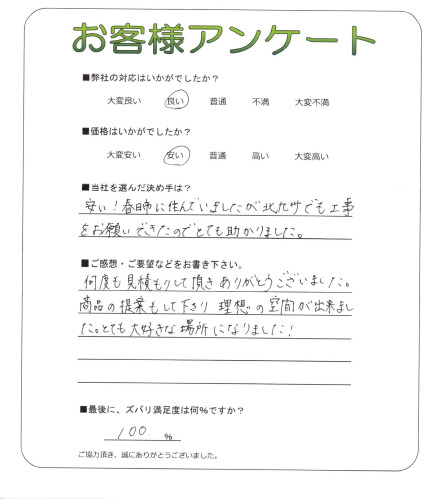 お客様アンケート
■弊社の対応はいかがでしたか？
大変良い 良い 普通 不満 大変不満
■価格はいかがでしたか？
大変安い 安い 普通 高い 大変高い
■当社を選んだ決め手は？
安い！春日市に住んでいましたが北九州でも工事
をお願いできたのでとても助かりました。
■ご感想・ご要望などをお書き下さい。
何度も見積もりして頂きありがとうございました。
商品の提案もして下さり 理想の空間が出来まし
た。とても大好きな場所になりました！
■最後に、ズバリ満足度は何%ですか？
100 %
ご協力頂き、誠にありがとうございました。